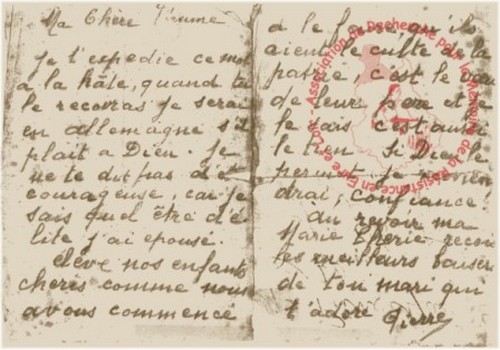 Ma Chère
je t'expedie ce mot
a la hâte, quand tu
le recevras je serai
en allemagne s'il
plait a Dieu. je
ne te dis pas d'être
courageuse, car je
sais quel être d'é
lite j'ai epousé.
élève nos enfants
cheris comme nous
avons commencé
a le faire, qu'ils
aient le culte de la
patrie, c'est le vœu
de leur père et je
le sais c'est aussi
le tien Si Dieu le
permet je revien
drai, confiance!
au revoir ma
Marie Cherie reçois
les meilleurs baisers
de ton mari qui
t'adore Pierre
Association de Recherche pour la Mémoire de la Résistance en Eure et Loir